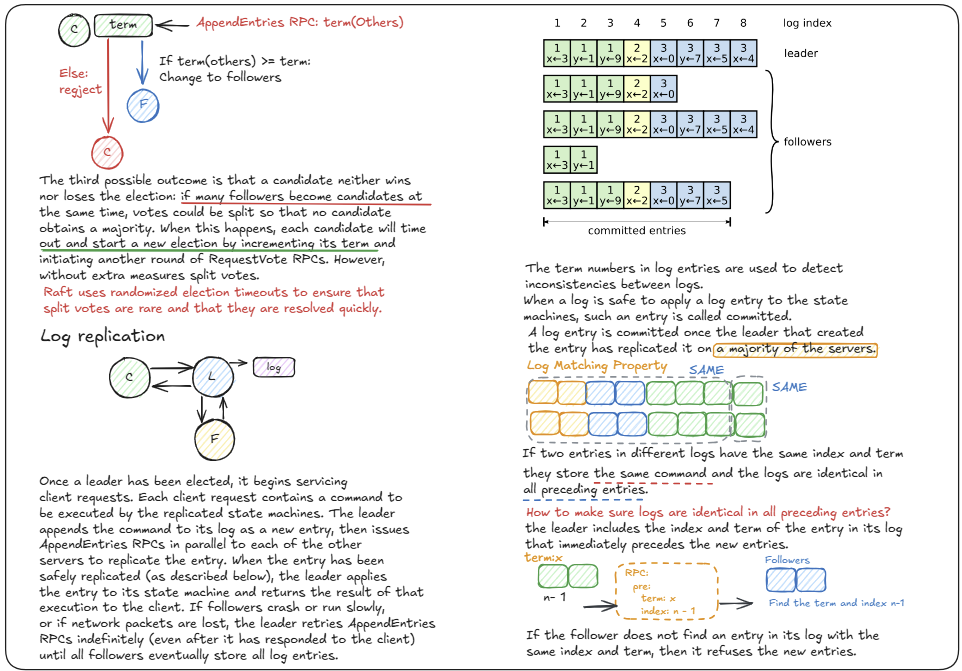 C
term
AppendEntries RPC: term(Others)
If term(others) >= term:
Change to followers
Else:
regject
F
C
The third possible outcome is that a candidate neither wins
nor loses the election: if many followers become candidates at
the same time, votes could be split so that no candidate
obtains a majority. When this happens, each candidate will time
out and start a new election by incrementing its term and
initiating another round of RequestVote RPCs. However,
without extra measures split votes.
Raft uses randomized election timeouts to ensure that
split votes are rare and that they are resolved quickly.
Log replication
C
L
log
F
Once a leader has been elected, it begins servicing
client requests. Each client request contains a command to
be executed by the replicated state machines. The leader
appends the command to its log as a new entry, then issues
AppendEntries RPCs in parallel to each of the other
servers to replicate the entry. When the entry has been
safely replicated (as described below), the leader applies
the entry to its state machine and returns the result of that
execution to the client. If followers crash or run slowly,
or if network packets are lost, the leader retries AppendEntries
RPCs indefinitely (even after it has responded to the client)
until all followers eventually store all log entries.
1 2 3 4 5 6 7 8 log index
1 1 1 2 3 3 3 3
x←3 y←1 y←9 x←2 x←0 y←7 x←5 x←4
leader
1 1 1 2 3
x←3 y←1 y←9 x←2 x←0
1 1 1 2 3 3 3 3
x←3 y←1 y←9 x←2 x←0 y←7 x←5 x←4
followers
1 1
x←3 y←1
1 1 1 2 3 3 3
x←3 y←1 y←9 x←2 x←0 y←7 x←5
committed entries
The term numbers in log entries are used to detect
inconsistencies between logs.
When a log is safe to apply a log entry to the state
machines, such an entry is called committed.
A log entry is committed once the leader that created
the entry has replicated it on a majority of the servers.
Log Matching Property
SAME
SAME
If two entries in different logs have the same index and term
they store the same command and the logs are identical in
all preceding entries.
How to make sure logs are identical in all preceding entries?
the leader includes the index and term of the entry in its log
that immediately precedes the new entries.
term:x
n- 1
RPC:
pre:
term: x
index: n - 1
Followers
Find the term and index n-1
If the follower does not find an entry in its log with the
same index and term, then it refuses the new entries.